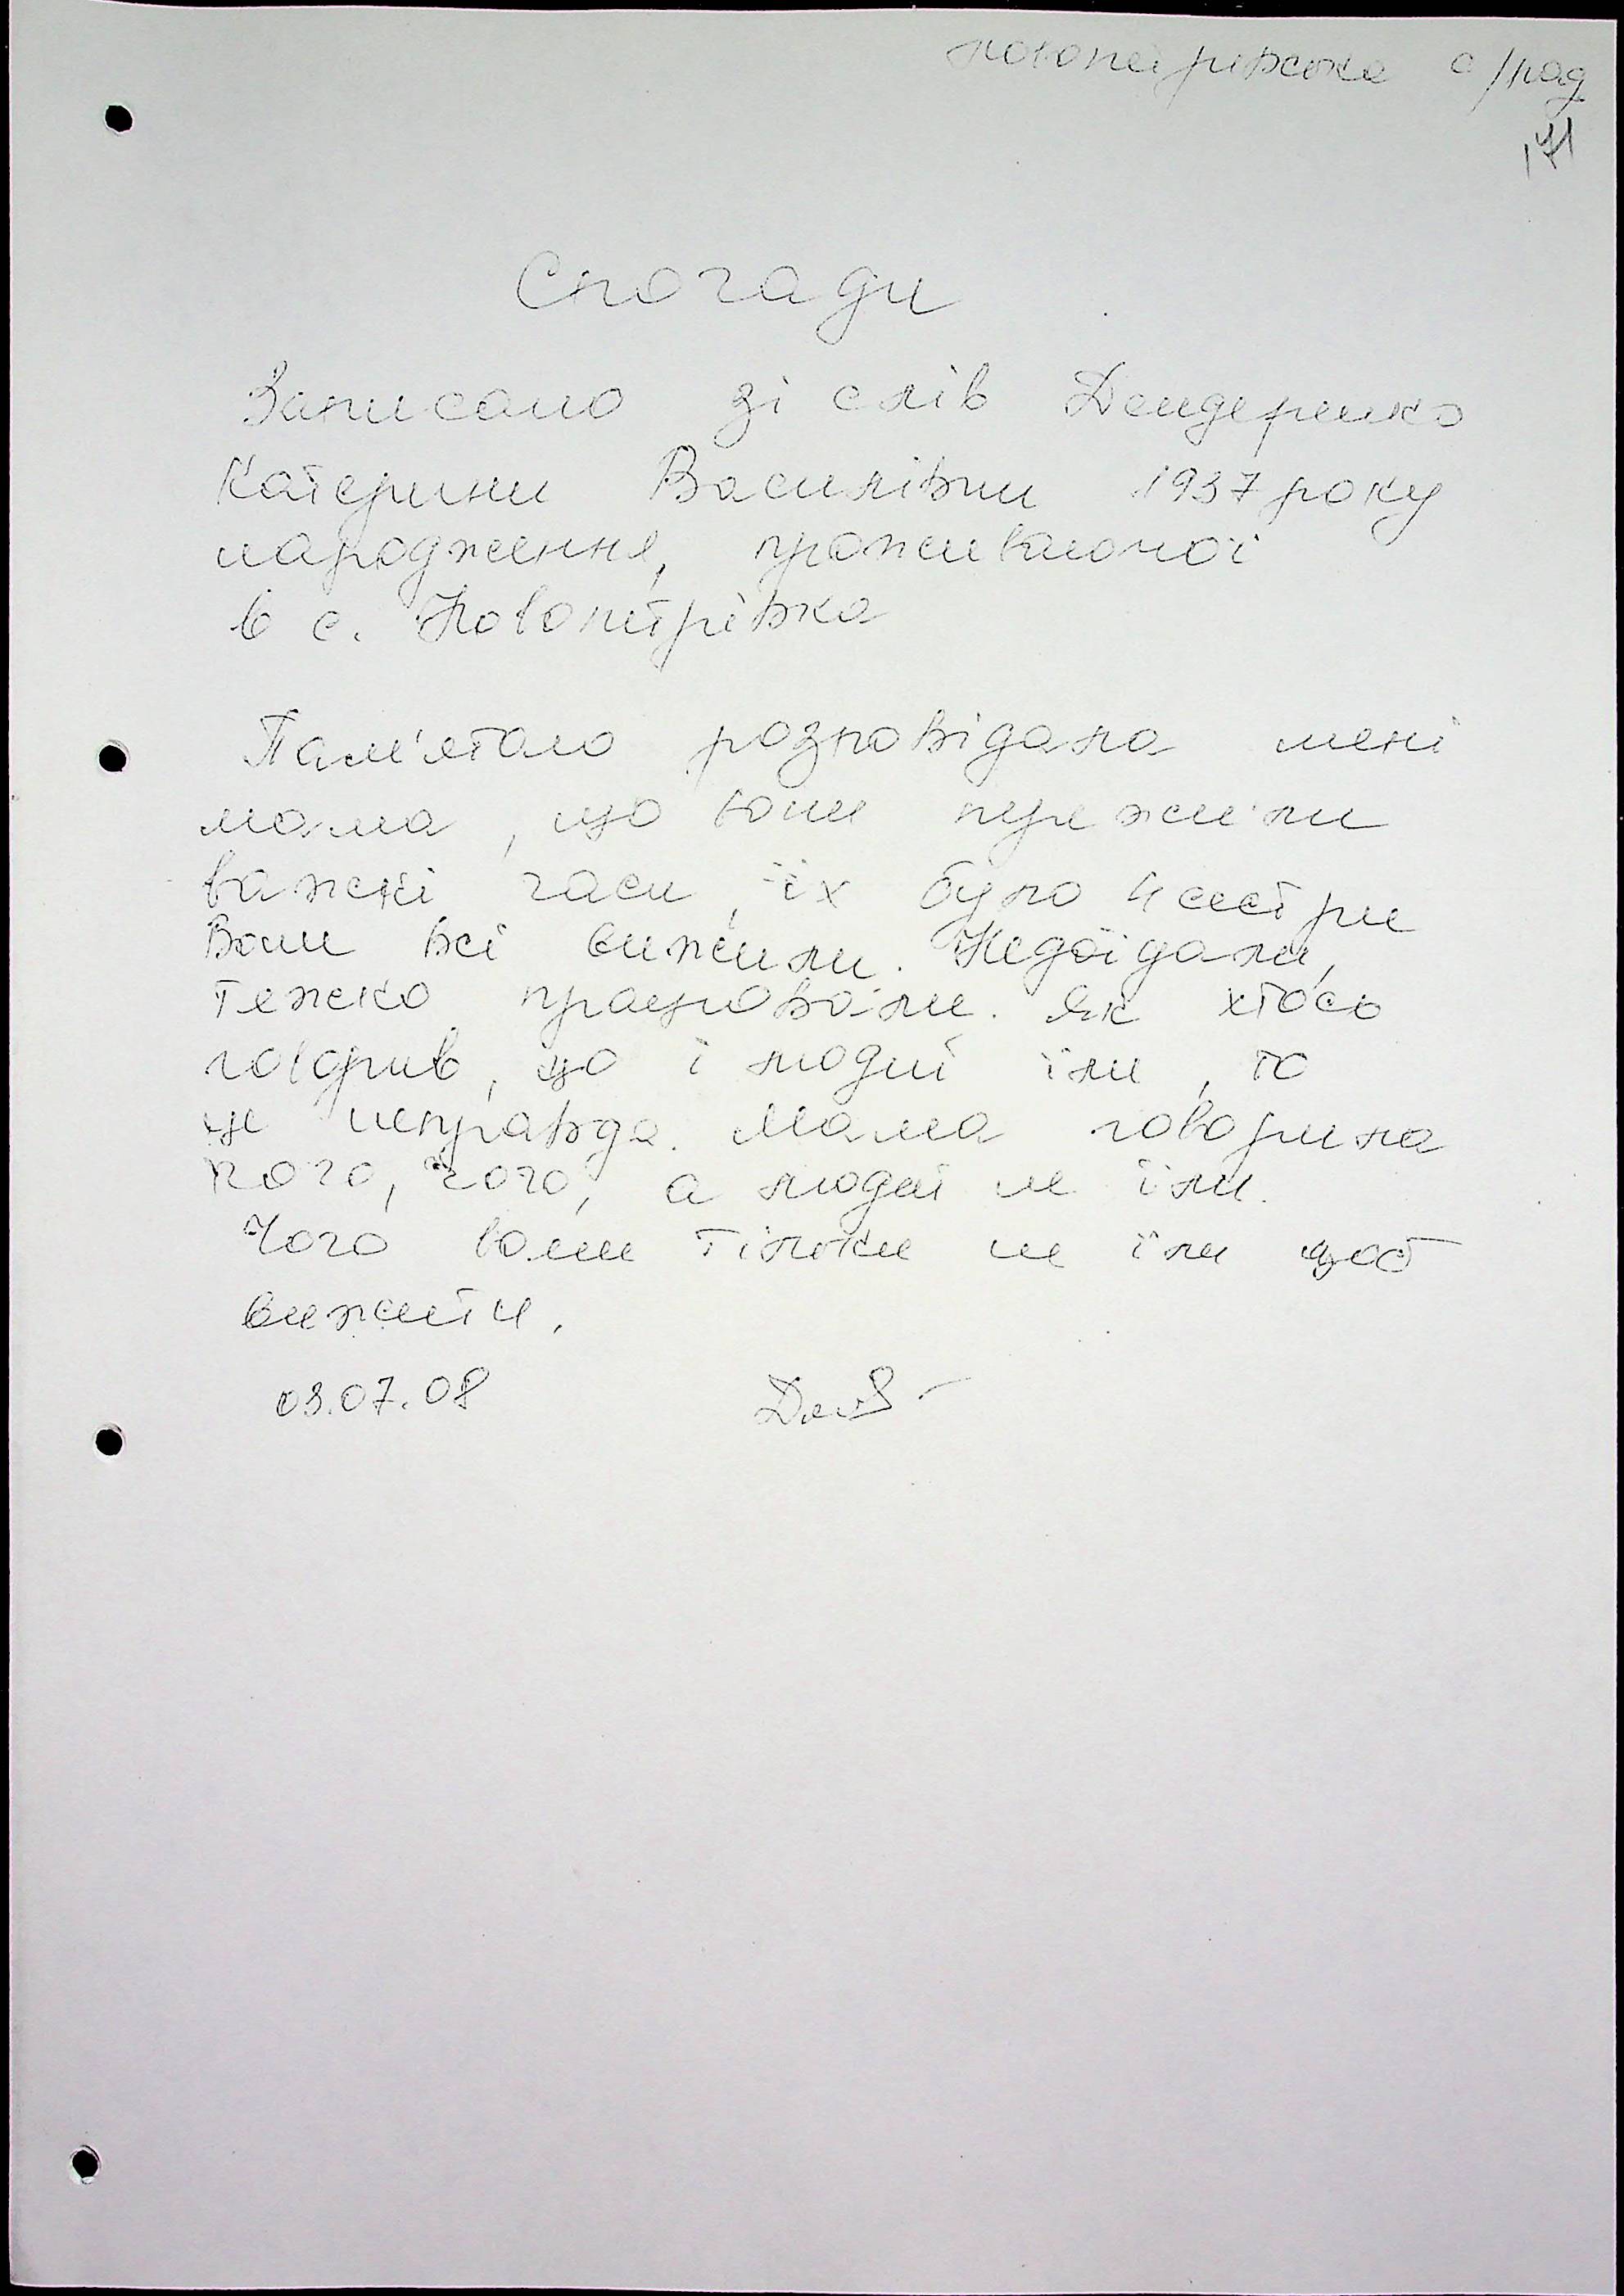 Новопетрівська с/рад
171
Спогади
Записано зі слів Дендеренко
Катерини Василівни 1937 року
народження, проживаючої
в с. Новопетрівка
Пам'ятаю розповідала мені
мама, що вони пережили
важкі часи, їх було 4 сестри
Вони всі вижили. Недоїдали,
тяжко працювали. Як хтось
говорив, що і людей їли, то
це неправда. Мама говорила
кого, чого, а людей не їли.
Чого вони тільки не їли щоб
вижити.
03.07.08